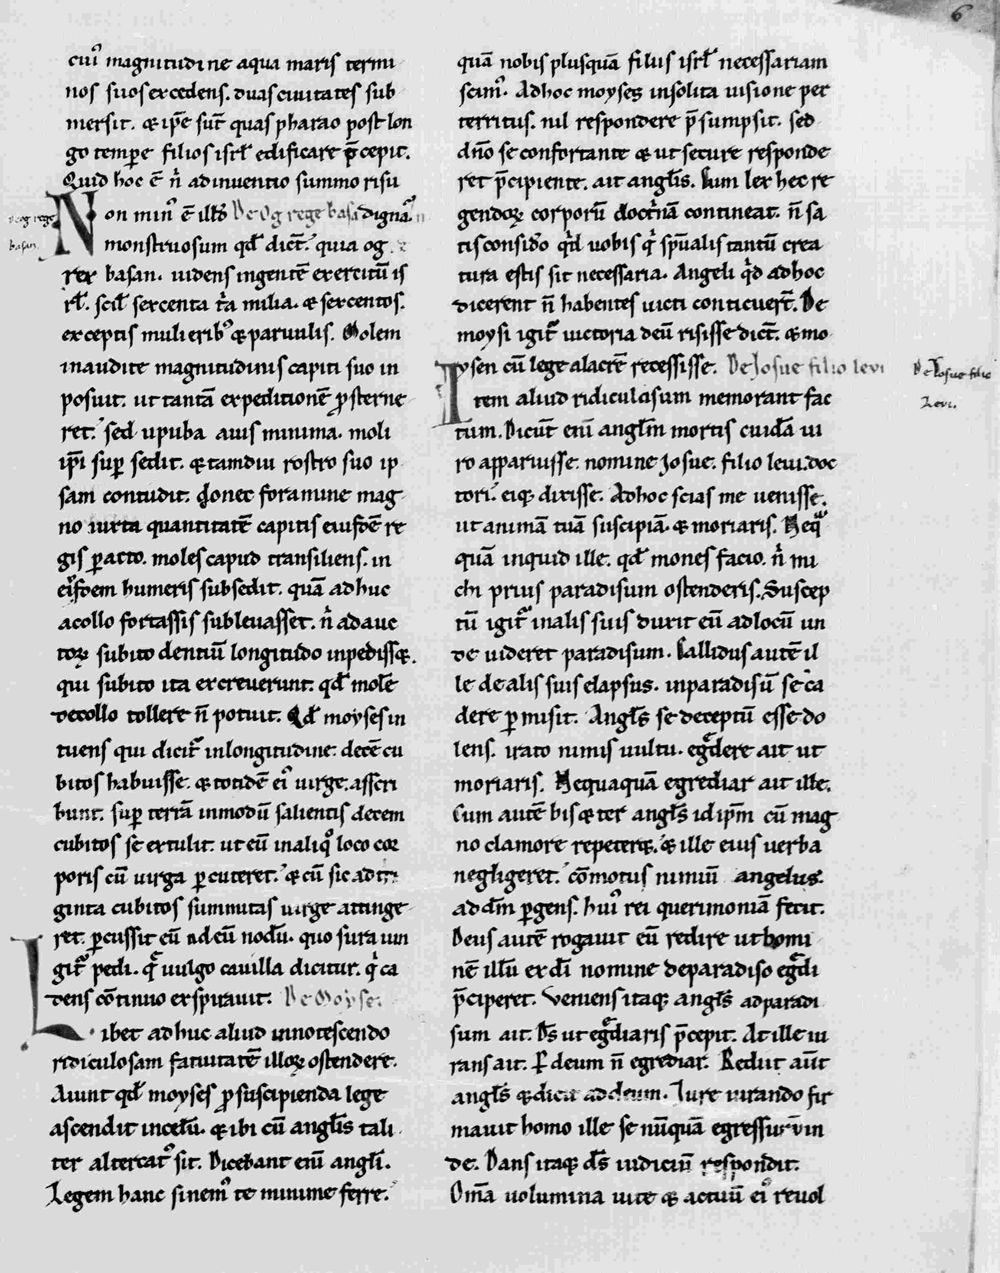 6
cui᷒ magnitudine aqua maris termi
nos suos excedens. duas ciuitates sub
mersit. & ip̄e sūt quas pharao post lon
go tempore filios isrł edificare p̄cepit.
Quid hoc ē n̄ adinuentio summo risu
De og rege
basan.
Non min᷒ ē illđ De Og rege basā dignā.
monstruosum qđ dict̄. quia og
rex basan. uidens ingentē exercitū is
rł. scił sexcenta t̄a milia. & sexcentos.
exceptis mulierib᷒ & paruulis. Molem
inaudite magnitudinis capiti suo in
posuit. ut tantā expeditionē ꝓsterne
ret. sed upuba auis minima. moli
ip̄i suꝑ sedit. & tamdiu rostro suo ip
sam contudit. donec foramine mag
no iuxta quantitatē capitis eiusdē re
gis ꝑacto. moles capud transiliens. in
ei᷒dem humeris subsedit. quā adhuc
a collo fortassis subleuasset. n̄ ad auc
toꝝ subito dentiū longitudo inpedisset.
qui subito ita excreuerunt. qđ molē
de collo tollere n̄ potuit. Qđ moyses in
tuens qui dicit᷑ in longitudine decē cu
bitos habuisse. & tondē ei᷒ uirge. asscri
bunt. suꝑ terrā inmodū salientis decem
cubitos se extulit. ut eū in aliq̊ loco cor
poris cū uirga ꝑcuteret. & cū sic ad tri
ginta cubitos summitas uirge attinge
ret. ꝑcussit eū ad eū nodū. quo sura iun
git᷑ pedi. q̄ uulgo cauilla dicitur. q̇ ca
dens cōtinuo exspirauit. De Moyse.
Libet adhuc aliud innotescendo
ridiculosam fatuitatē illoꝝ ostendere.
Aiunt qđ moyses ꝓ suscipienda lege
ascendit in celū. & ibi cū angłis tali
ter altercat᷒ sit. Dicebant eni angłi.
Legem hanc sinem᷒ te minime ferre.
quā nobis plusquā filiis isrł necessariam
scim᷒. Ad hoc moyses insolita uisione per
territus. nil respondere p̄sumpsit. sed
dn̄o se confortante & ut secure responde
ret p̄cipiente. ait angłis. Cum lex hec re
gendoꝝ corporū doct̄nā contineat. n̄ sa
tis considͦo q̇d uobis q̇ sp̄ualis tantū crea
tura estis sit necessaria. Angeli q̇d ad hoc
dicerent n̄ habentes uicti conticuer̄t. De
moysi igit᷑ uictoria deū risisse dict̄. & mo
ysen cū lege alacrē recessisse. De Josue filio levi
De Josue filio
Levi.
Item aliud ridiculosum memorant fac
tum. Dicūt eni angłm mortis cuidā ui
ro apparuisse. nomine Josue. filio leui. doc
tori. eiq; dixisse. Ad hoc scias me uenisse.
ut animā tuā suscipiā. & moriaris. Neq̄
quā inquid ille. qđ mones facio. n̄ mi
chi prius paradisum ostenderis. Suscep
tū igit᷑ in alis suis duxit eū ad locū un
de uideret paradisum. Callidus autē il
le de alis suis elapsus. in paradisū se ca
dere ꝑmisit. Angłs se deceptū esse do
lens. irato nimis uultu. eg̃dere ait ut
moriaris. Nequaquā egrediar ait ille.
Cum autē bis & ter angłs id ip̄m cū mag
no clamore repeteret. & ille eius uerba
negligeret. cōmotus nimiū angelus.
ad dm̄ ꝑgens. hui᷒ rei querimoniā fecit.
Deus autē rogauit eū redire ut homi
nē illū ex dī nomine de paradiso eg̃di
p̄ciperet. Veniens itaq; angłs ad paradi
sum ait. Ds̄ ut eg̃diaris p̄cepit. At ille iu
rans ait. ꝑ deum n̄ egrediar. Rediit aūt
angłs & dicit ad deum. Iure iurando fir
mauit homo ille se nūquā egressur᷒ in
de. Dans itaq; ds̄ iudiciū respondit.
Om̄a uolumina uite & actuū ei᷒ reuol